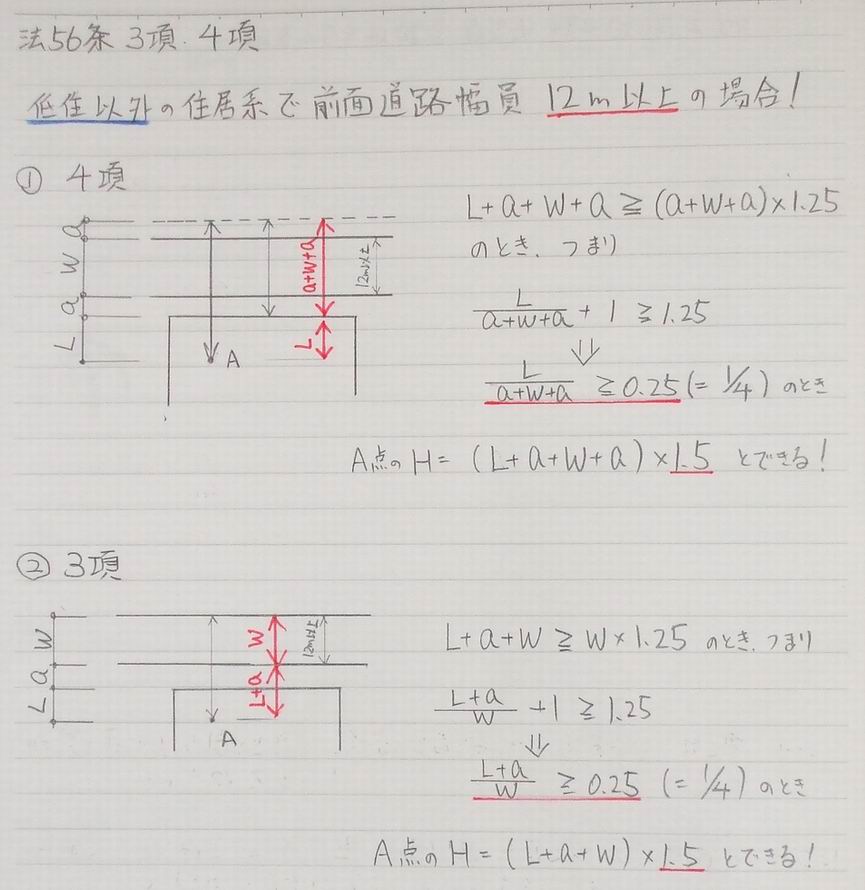 法56条 3項.4項
低住以外の住居系で前面道路幅員 12m以上の場合!
① 4項
L+a+W+a ≧ (a+W+a)×1.25
のとき、つまり
L/(a+W+a) + 1 ≧ 1.25
⇓
L/(a+W+a) ≧ 0.25 (= 1/4) のとき
a
W
a
L
a+W+a
12m以上
L
A
A点の H = (L+a+W+a)×1.5 とできる!
② 3項
L+a+W ≧ W×1.25 のとき、つまり
(L+a)/W + 1 ≧ 1.25
⇓
(L+a)/W ≧ 0.25 (= 1/4) のとき
W
a
L
W
12m以上
L+a
A
A点の H = (L+a+W)×1.5 とできる!